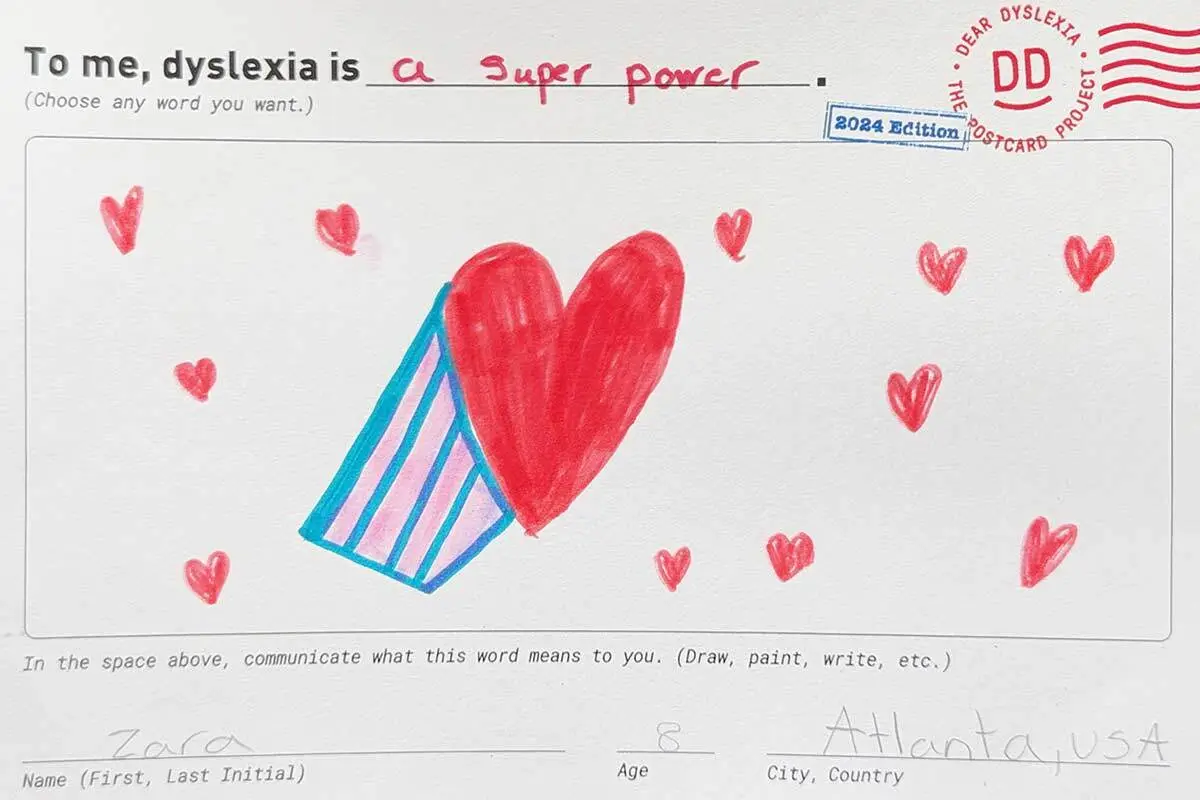 To me, dyslexia is a super power.
(Choose any word you want.)
DEAR DYSLEXIA
DD
THE POSTCARD PROJECT
2024 Edition
In the space above, communicate what this word means to you. (Draw, paint, write, etc.)
Zara 8 Atlanta, USA
Name (First, Last Initial) Age City, Country